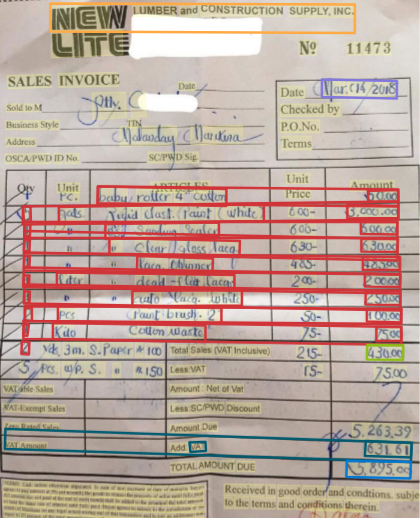 NEW LUMBER and CONSTRUCTION SUPPLY, INC.
LITE
Nº 11473
SALES INVOICE
Date
Date Mar. 14, 2018
Sold to M
Checked by
Business Style TIN
P.O.No.
Address Malanday Marikina
Terms
OSCA/PWD ID No. SC/PWD Sig.
Qty Unit ARTICLES Unit Price Amount
Pc. baby roller 4" cotton 60.00
Gals. Paint (white) 600- 3,000.00
" Sanding Sealer 600- 600.00
" Clear Gloss lacq. 630- 630.00
" lacq. thinner 485- 485.00
liter " dead-flat lacq 200- 200.00
" " auto lacq. white 250- 250.00
2 pcs Paint brush 2" 50- 100.00
1 Kilo Cotton waste 75- 75.00
2 yds. 3m. S. Paper # 100 Total Sales (VAT Inclusive) 215- 430.00
5 Pcs. w/p. S. " # 150 Less: VAT 15- 75.00
VAT-able Sales Amount: Net of Vat
VAT-Exempt Sales Less: SC/PWD Discount
Zero Rated Sales Amount Due 5,263.39
VAT Amount Add: VAT 631.61
TOTAL AMOUNT DUE 5,895.00
Received in good order and condtions. subje
to the terms and conditions therein.